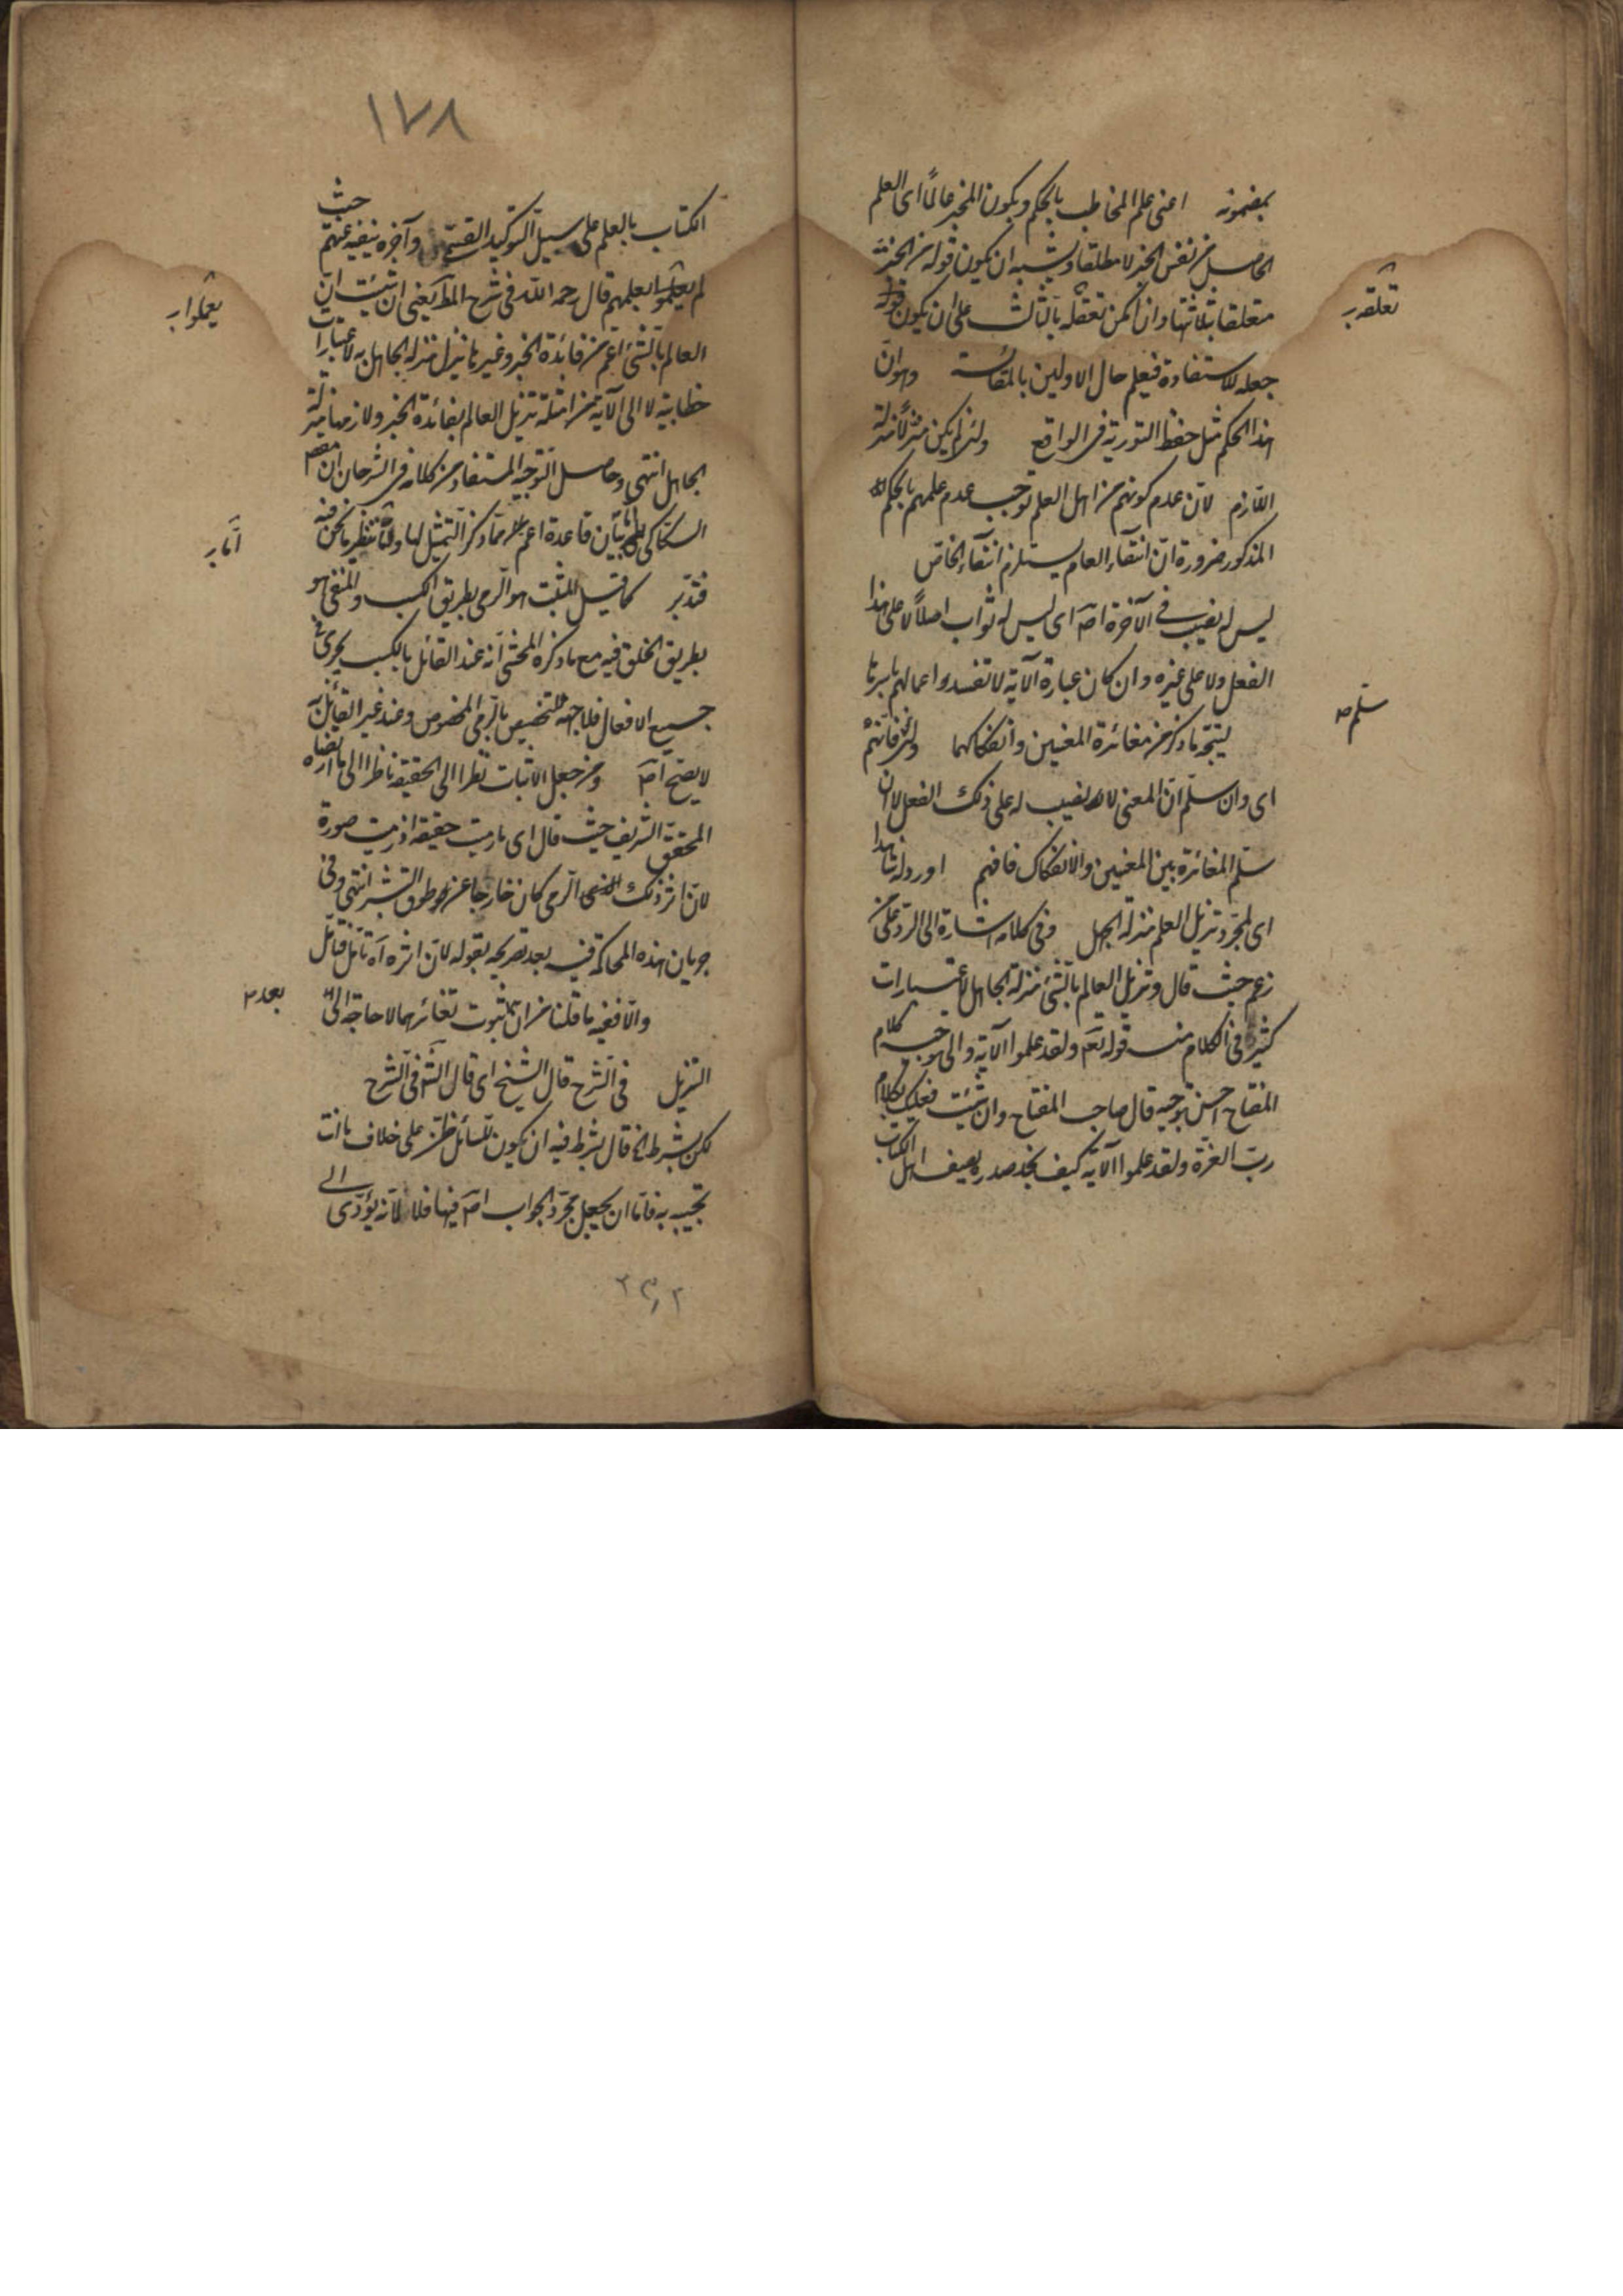 بمضمونه اعنى علم المخاطب بالحكم ويكون المخبر عالماً اى العلم
الحاصل من نفس الخبر لا مطلقا ويشبه ان يكون قوله من الخبر
متعلقا بثلاثتها وان امكن تعقله بالثالث على ان يكون قوله
تعلقه بر
جعله للاستفادة فيعلم حال الاولين بالمقائسة وهو ان
هذا الحكم مثل حفظ التورية فى الواقع ولئن لم يكن منزلا منزلة
اللازم لان عدم كونهم من اهل العلم توجب عدم علمهم بالحكم
المذكور ضرورة ان انتفاء العام يستلزم انتفاء الخاص
ليس له نصيب فى الآخرة اص اى ليس له ثواب اصلاً لا على هذا
الفعل ولا على غيره وان كان عبارة الآية لا تفسدوا اعمالهم باسرها
ليتجه ما ذكر من مغائرة المعنيين وانفكاكهما ولئن
سلم صه
اى وان سلم ان المعنى لا نصيب له على ذلك الفعل لان
سلم المغائرة بين المعنيين والانفكاك فافهم اورد له شاهدا
اى لمجرد تنزيل العلم منزلة الجهل وفى كلامه اشارة الى الرد على من
زعم حيث قال وتنزيل العالم بالشئ منزلة الجاهل لاعتبارات
كثير فى الكلام منه قوله تعم ولقد علموا الآية والى توجيه كلام
المفتاح احسن توجيه قال صاحب المفتاح وان شئت فعليك بكلام
رب العزة ولقد علموا الآية كيف تجد صدره يصف اهل الكتاب
١٧٨
الكتاب بالعلم على سبيل التوكيد القسمى وآخره ينفيه عنهم حيث
لم يعلموا بعلمهم قال رحمه الله فى شرح المط يعنى ان شئت ان
يعملوا بر
العالم بالشئ اعم من فائدة الخبر وغيرها ينزل منزلة الجاهل به لاعتبارات
خطابية لا الى الآية من امثلة تنزيل العالم بفائدة الخبر ولازمها منزلة
الجاهل انتهى وحاصل التوجيه المستفاد من كلامه فى الشرحان ان مقصم
السكاكى بيان قاعدة اعم مما ذكر التمثيل لها ولتنظير ما نحن فيه
اما بر
فتدبر كما قيل المثبت هو الرمى بطريق الكسب والمنفى هو
بطريق الخلق فيه مع ما ذكره المحشى انه عند القائل بالكسب يجرى فى
جميع الافعال فلا جهة للتخصيص بالرمى المخصوص وعند غير القائل به
لا يصح اص ومن جعل الاثبات نظرا الى الحقيقة ناظرا الى ما افاده
المحقق الشريف حيث قال اى ما رميت حقيقة اذ رميت صورة
لان اثر ذلك الرمى كان خارجا عن طوق البشر انتهى وفى
جريان هذه المحاكمة فيه بعد تصريحه بقوله لان اثره آه تأمل فتأمل
والا ففيه ما قلنا من ان ثبوت تغائرهما لا حاجة الى
بعد ٢
التنزيل فى الشرح قال الشيخ اى قال الش فى الشرح
لكن بشرط الخ قال بشرط فيه ان يكون للسائل ظن على خلاف ما انت
تجيب به فاما ان يجعل مجرد الجواب اص فيها فلا لانه يؤدى الى